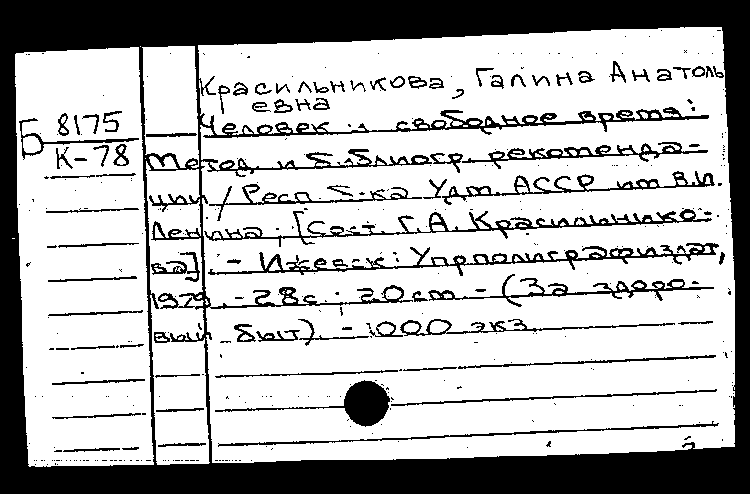 Красильникова, Галина Анатоль
евна
Б 8175
К-78
Человек и свободное время:
Метод. и библиогр. рекоменда-
ции / Респ. б-ка Удм. АССР им. В.И.
Ленина; [Сост. Г.А. Красильнико-
ва]. - Ижевск: Упрполиграфиздат,
1979. - 28с.; 20см. - (За здоро-
вый быт). - 1000 экз.